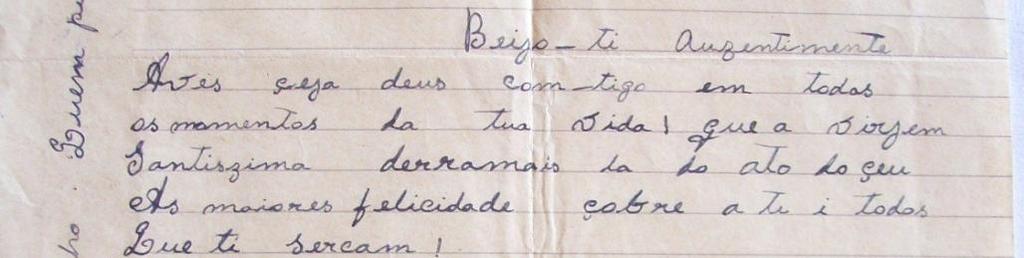 Beijo-ti Auzentimente
Aves çeja deus com-tigo em todos
os momentos da tua vida! que a virjem
Santiszima derramais la do alto do çeu
As maiores felicidade çobre a ti i todos
Que ti sercam!
Quem